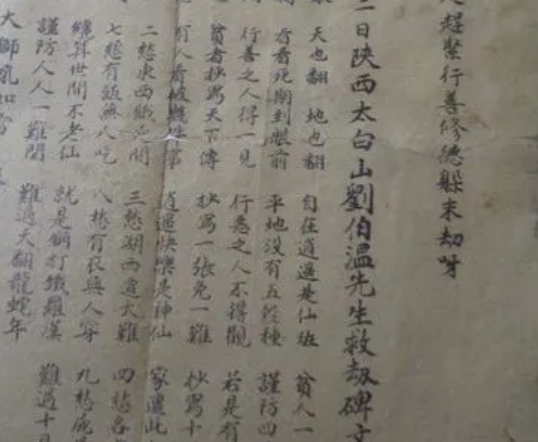 趕緊行善修德躲末劫呀
二日陝西太白山劉伯溫先生救劫碑文
天也翻 地也翻 自在逍遙是仙班 貧人一
看看死期到眼前 平地沒有五谷種 謹防四
行善之人得一見 行惡之人不得觀 若是有
貧者抄寫天下傳 抄寫一張免一難 抄寫十
有人看破 逍遙快樂是神仙 家遭此
二愁東西餓死 三愁湖西遭大難 四愁各
七愁有飯無人吃 八愁有衣無人穿 九愁
算世間不老仙 就是銅打鐵羅漢
謹防人人一難關 難過天翻龍蛇年 難過十
大獅吼如雷